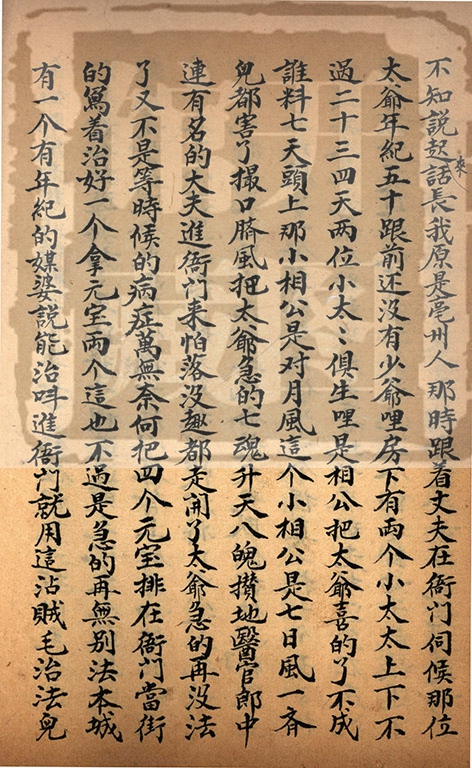 不知說起來話長我原是亳州人那時跟着丈夫在衙門伺候那位
太爺年紀五十跟前还没有少爺哩房下有两个小太太上下不
過二十三四天两位小太〻俱生哩是相公把太爺喜的了不成
誰料七天頭上那小相公是对月風這个小相公是七日風一齐
兒都害了撮口臍風把太爺急的七魂升天八魄攅地醫官郎中
連有名的大夫進衙門来怕落没趣都走開了太爺急的再没法
了又不是等時候的病症萬無奈何把四个元宝排在衙門當街
的寫着治好一个拿元宝两个這也不過是急的再無别法本城
有一个有年紀的媒婆說能治呌進衙门就用這沾賊毛治法兒